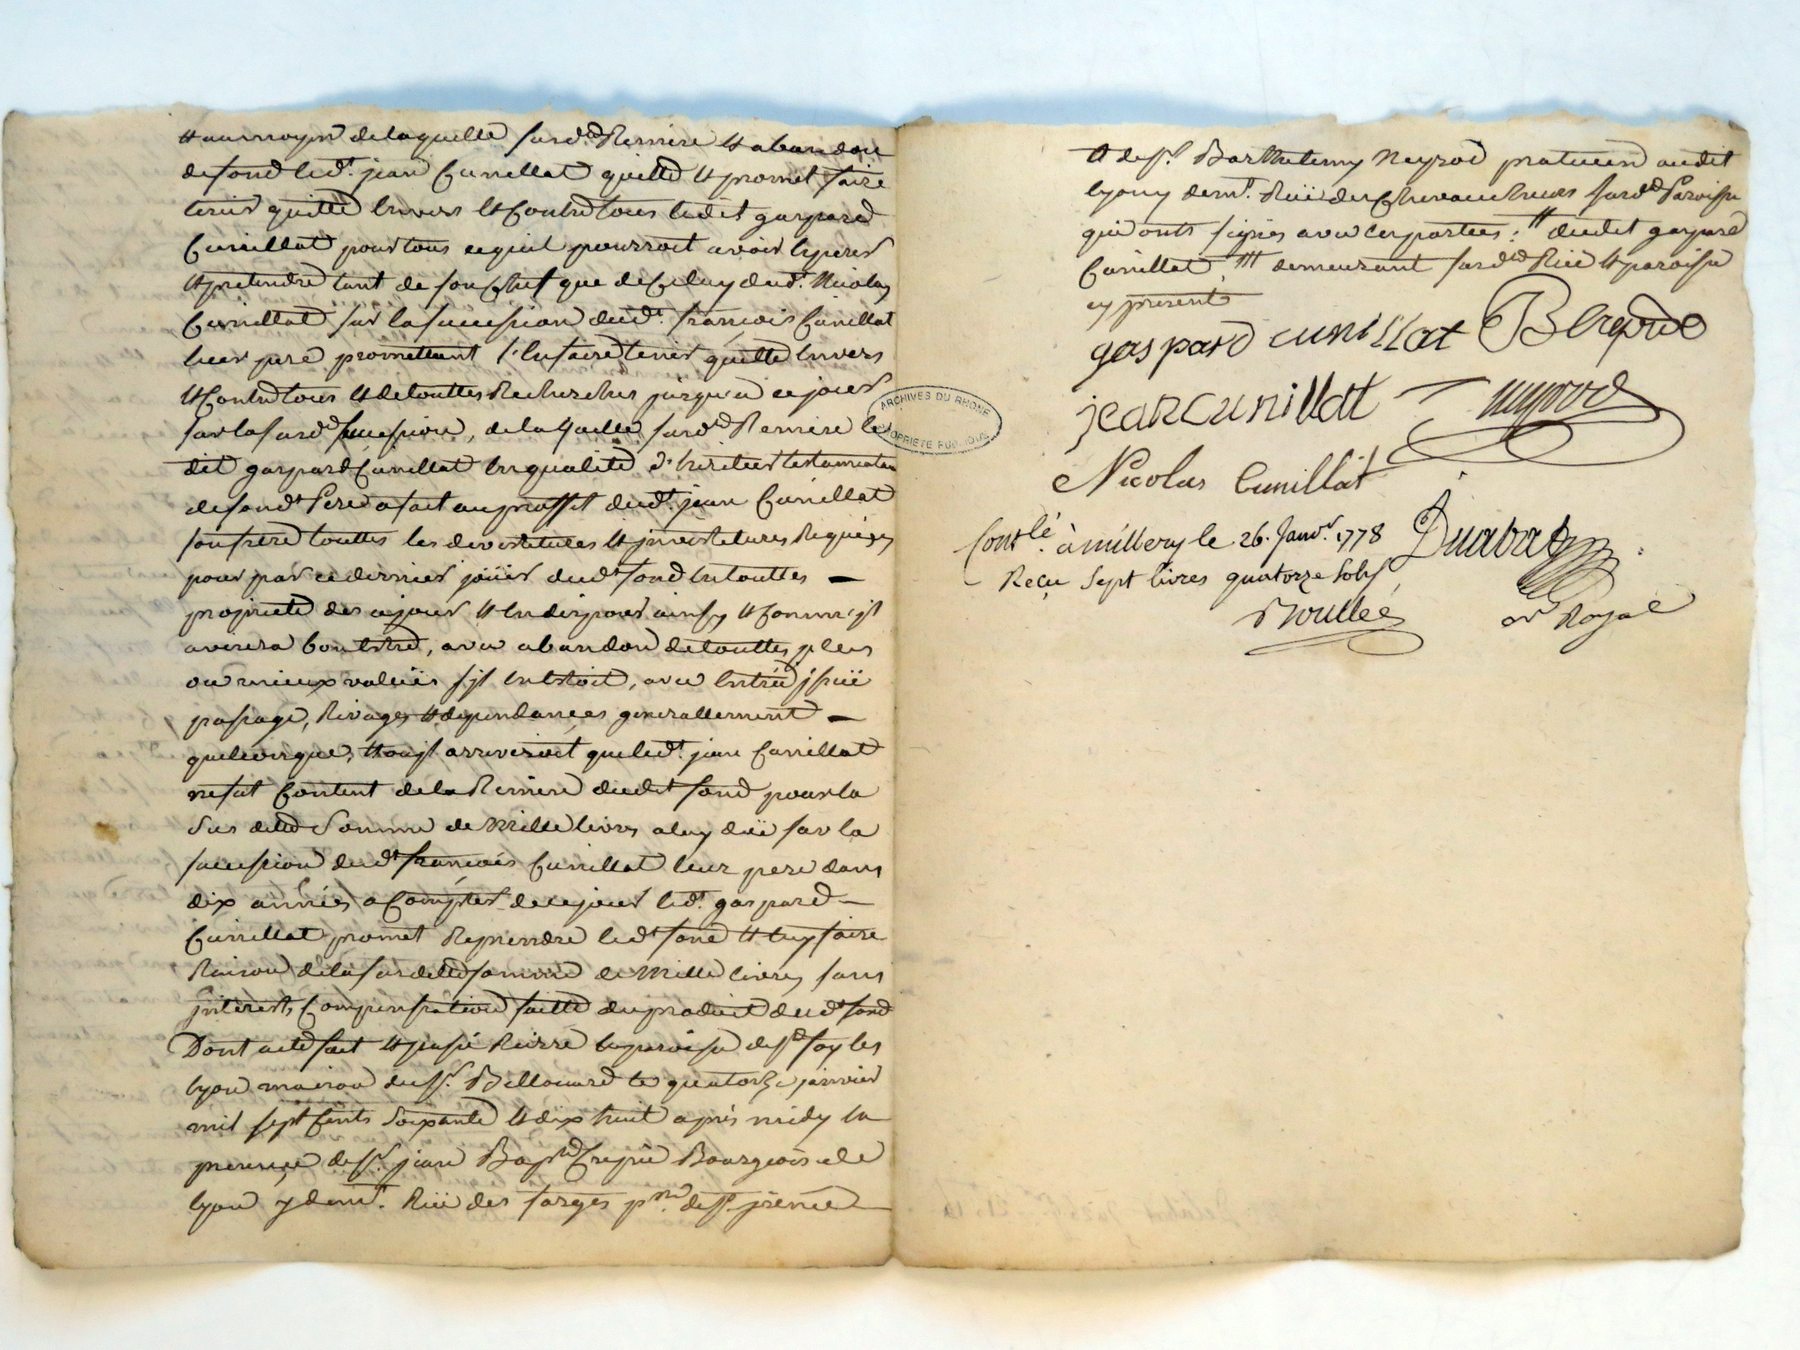 et au moyen de laquelle susd.te Remise et abandon
de fond led.t jean Cunillat quitte et promet faire
tenir quitte envers et Contre tous ledit gaspard
Cunillat pour tous ce quil pourroit avoir esperer
et pretendre tant de son Chef que de Celuy dud.t Nicolas
Cunillat sur la succession dud.t françois Cunillat
leur pere promettant l'en faire tenir quitte envers
et Contre tous et de touttes Recherches jusqu'a ce jour
sur la susd.e succession, de laquelle susd.e Remise le
dit gaspard Cunillat en qualité d'heritier testamentaire
de sond.t Pere a fait au proffit dud.t jean Cunillat
son frere touttes les devestitures et jnvestitures Requises
pour par ce dernier joüir dud.t fond en touttes
proprieté des ce jour et en disposer ainsy et Comme jl
avisera bon etre, avec abandon de touttes plus
ou mieux values s'jl en etoit, avec entrée jssuë
passage, Rivages et dependances generallement
quelconques, et ou jl arriveroit que led.t jean Cunillat
ne fut Content de la Remise dudit fond pour la
Sus ditte Somme de Mille livres a luy düe sur la
succession dud.t françois Cunillat leur pere dans
dix années a Compter de ce jour led.t gaspard
Cunillat promet Reprendre led.t fond et luy faire
Raison de la susditte somme de Mille livres sans
jnterests, Compensation faitte du produit dud.t fond
Dont acte fait et passé Riere la paroisse de S.te foy les
lyon maison du S.r Billouard le quatorze janvier
mil sept Cents Soixante et dix huit après midy en
presence de S.r jean Bap.te Crepie Bourgeois de
lyon y dem.t Rüe des farges p.sse de S.t jrenée
et de S.r Barthelemy Neyrod praticien audit
lyon y dem.t Rüe des Chevaucheurs susd.te Paroisse
qui onts signés avec les parties : # dudit gaspard
Cunillat, ### demeurant susd.te Rüe et paroisse
cy present
gaspard cunillat BCrepie
jean Cunillat neyrod
Nicolas Cunillat
Cont.lé à millery le 26. Janv.r 1778 Duabat
Reçu Sept livres quatorze Sols
Roullée n.re Royal
ARCHIVES DU RHONE
PROPRIETE PUBLIQUE